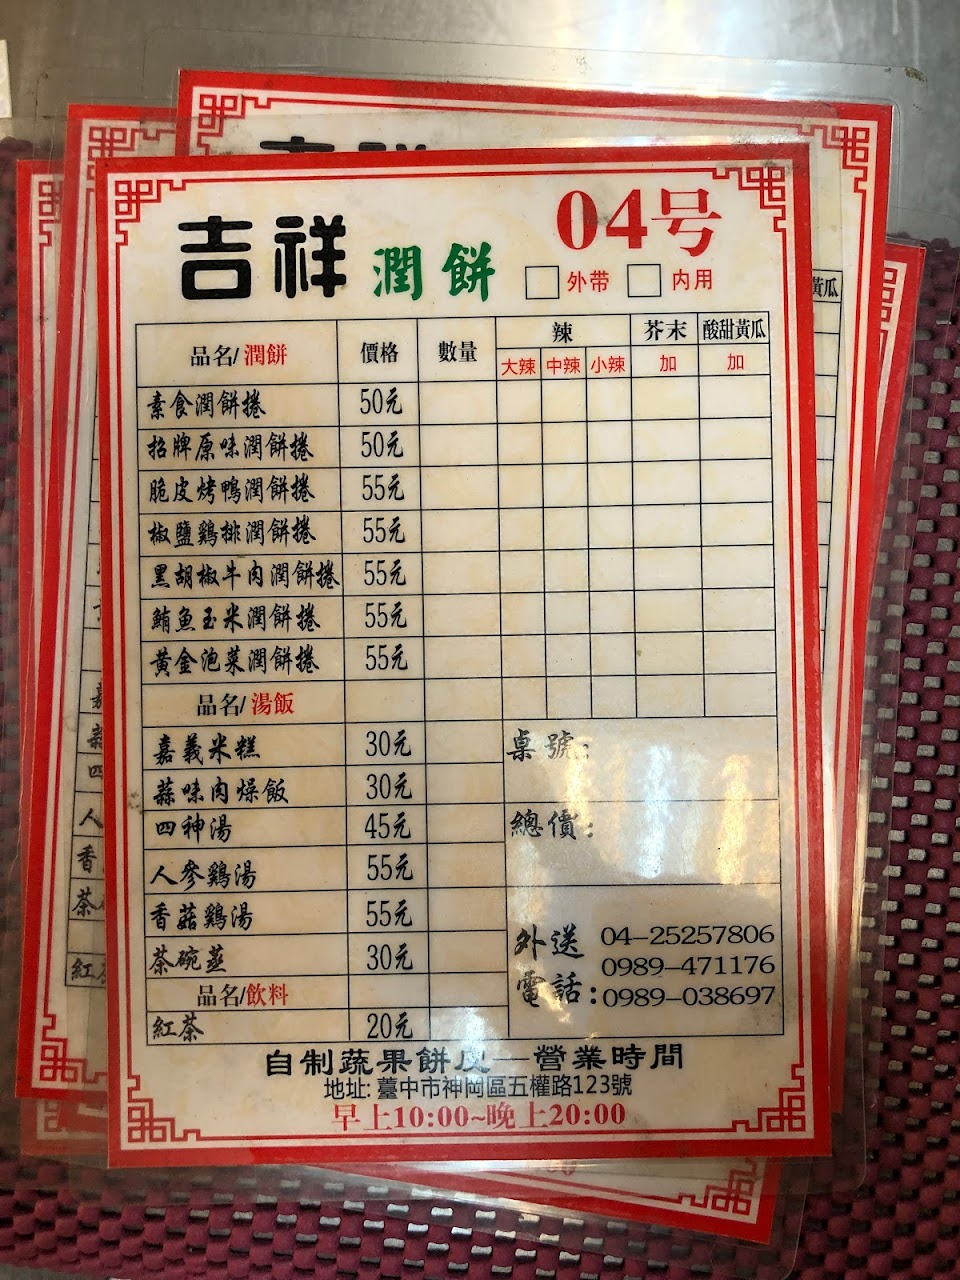 吉祥 潤餅 04号
外带 内用
品名/潤餅 價格 數量 辣 芥末 酸甜黃瓜
大辣 中辣 小辣 加 加
素食潤餅捲 50元
招牌原味潤餅捲 50元
脆皮烤鴨潤餅捲 55元
椒鹽鷄排潤餅捲 55元
黑胡椒牛肉潤餅捲 55元
鮪魚玉米潤餅捲 55元
黃金泡菜潤餅捲 55元
品名/湯飯
嘉義米糕 30元
蒜味肉燥飯 30元
四神湯 45元
人參鷄湯 55元
香菇鷄湯 55元
茶碗蒸 30元
品名/飲料
紅茶 20元
桌號:
總價:
外送電話:
04-25257806
0989-471176
0989-038697
自制蔬果餅皮—營業時間
地址: 臺中市神岡區五權路123號
早上10:00~晚上20:00